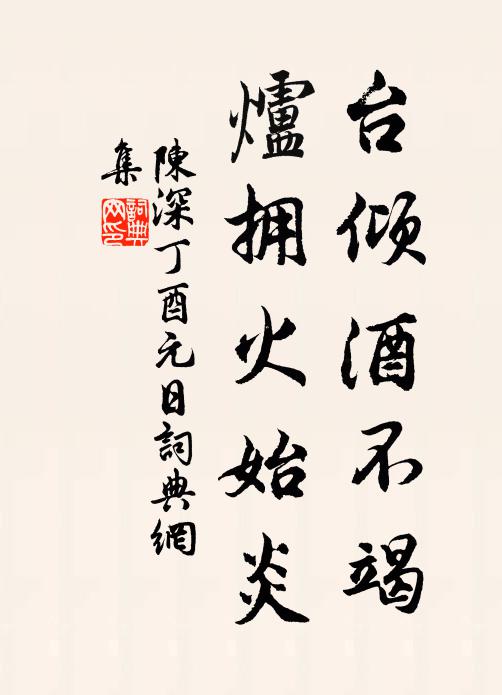 台倾酒不竭
爐拥火始炎
陳深丁酉元日詞典網
集
詞典网印